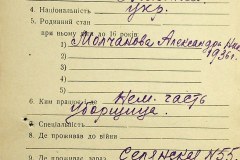 4. Національність
укр.
5. Родинний стан
при ньому діти до 16 років:
1) Молчанова Александра
1936г.
2)
3)
4)
5)
6. Ким працює і де Нем. часть
уборщице.
7. Спеціальність
8. Де проживав до війни
9. Де проживає зараз Селянская 55